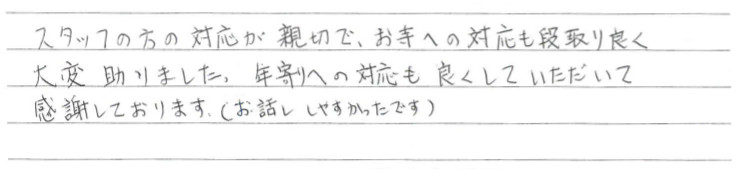 スタッフの方の対応が親切で、お寺への対応も段取り良く
大変助りました。年寄りへの対応も良くしていただいて
感謝しております。(お話ししやすかったです)